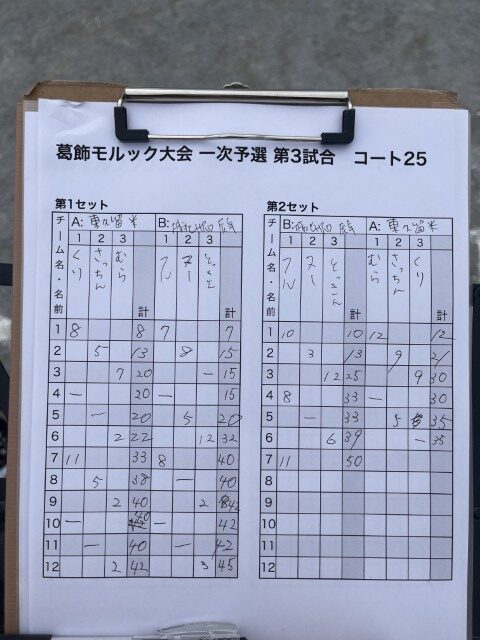 葛飾モルック大会 一次予選 第3試合 コート25
第1セット
チーム名・名前 A: 東久留米 B:
1 2 3 1 2 3
くり さっちん むら 計 フル ヌー 計
1 8 8 7 7
2 5 13 8 15
3 7 20 - 15
4 - 20 - 15
5 - 20 5 20
6 2 22 12 32
7 11 33 8 40
8 5 38 - 40
9 2 40 2 42
10 - 40 - 42
11 - 40 - 42
12 2 42 3 45
第2セット
チーム名・名前 B: A: 東久留米
1 2 3 1 2 3
フル ヌー 計 むら さっちん くり 計
1 10 10 12 12
2 3 13 9 21
3 12 25 9 30
4 8 33 - 30
5 - 33 5 35
6 6 39 - 35
7 11 50
8
9
10
11
12